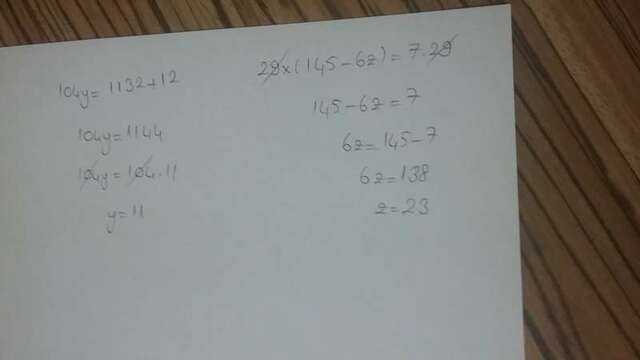 104y = 1132+12
104y = 1144
104y = 104·11
y = 11
29×(145-6z) = 7·29
145-6z = 7
6z = 145-7
6z = 138
z = 23